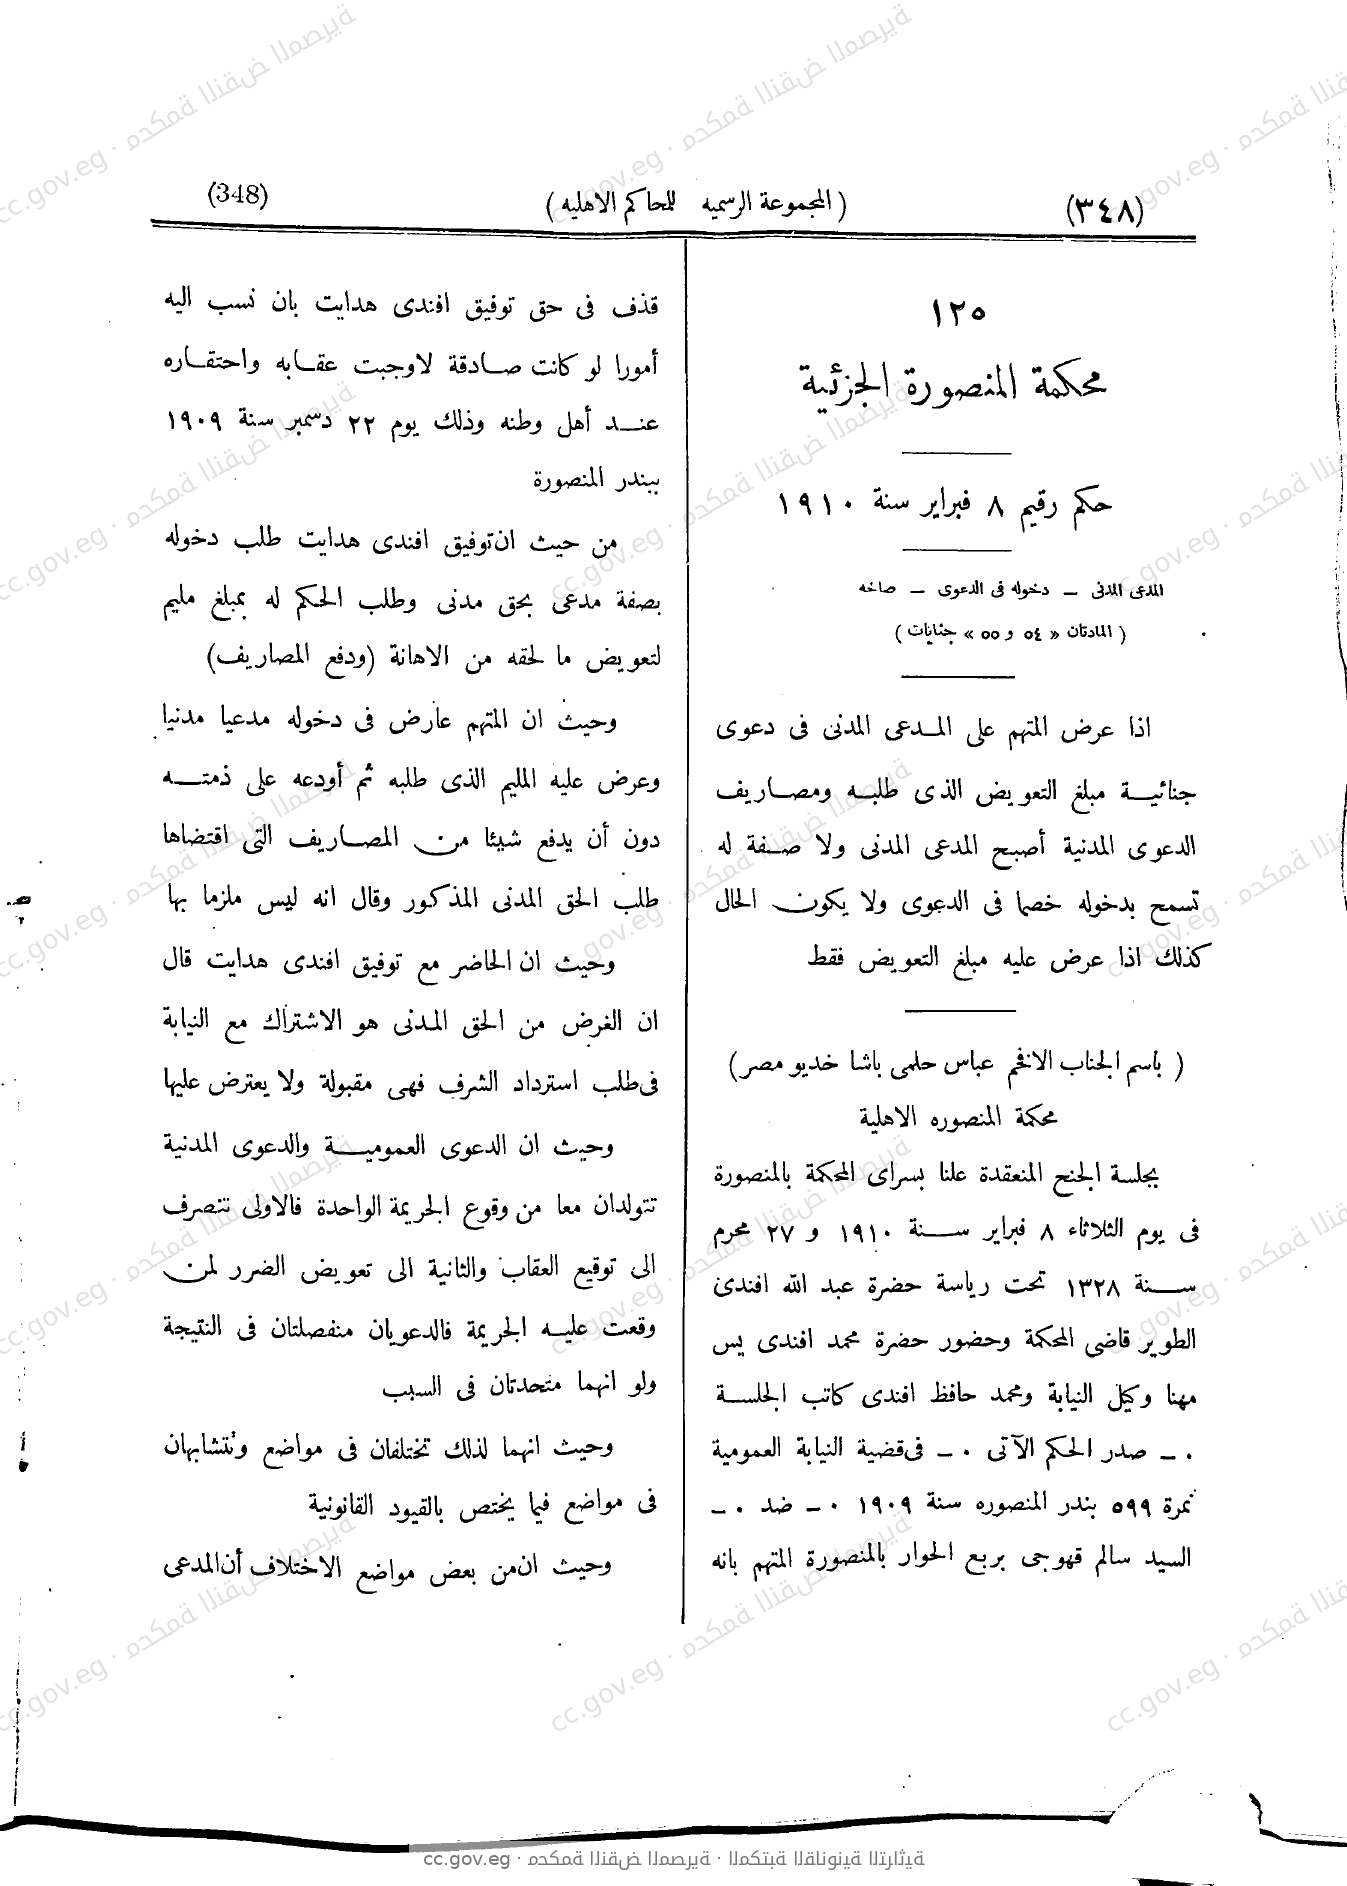 (٣٤٨)
( المجموعة الرسميه للمحاكم الاهليه )
(348)
١٢٥
محكمة المنصورة الجزئية
حكم رقيم ٨ فبراير سنة ١٩١٠
المدعى المدنى ــ دخوله فى الدعوى ــ صاخه
( المادتان « ٥٤ و ٥٥ » جنايات )
اذا عرض المتهم على المـدعى المدنى فى دعوى
جنائيـة مبلغ التعويض الذى طلبـه ومصـاريف
الدعوى المدنية أصبح المدعى المدنى ولا صـفة له
تسمح بدخوله خصما فى الدعوى ولا يكون الحال
كذلك اذا عرض عليه مبلغ التعويض فقط
( باسم الجناب الافخم عباس حلمى باشا خديو مصر )
محكمة المنصوره الاهلية
بجلسة الجنح المنعقدة علنا بسراى المحكمة بالمنصورة
فى يوم الثلاثاء ٨ فبراير سـنة ١٩١٠ و ٢٧ محرم
سـنة ١٣٢٨ تحت رياسة حضرة عبد الله افندى
الطوير قاضى المحكمة وحضور حضرة محمد افندى يس
مهنا وكيل النيابة ومحمد حافظ افندى كاتب الجلسـة
٠ ــ صدر الحكم الآتى ٠ ــ فى قضية النيابة العمومية
نمرة ٥٩٩ بندر المنصوره سنة ١٩٠٩ ٠ ــ ضد ٠ ــ
السيد سالم قهوجى بربع الحوار بالمنصورة المتهم بانه
قذف فى حق توفيق افندى هدايت بان نسب اليه
أمورا لو كانت صـادقة لاوجبت عقـابه واحتقـاره
عنــد أهل وطنه وذلك يوم ٢٢ دسمبر سنة ١٩٠٩
ببندر المنصورة
من حيث ان توفيق افندى هدايت طلب دخوله
بصفة مدعى بحق مدنى وطلب الحكم له بمبلغ مليم
لتعويض ما لحقه من الاهانة (ودفع المصاريف)
وحيث ان المتهم عارض فى دخوله مدعيا مدنيا
وعرض عليه المليم الذى طلبه ثم أودعه على ذمتــه
دون أن يدفع شيئا من المصـاريف التى اقتضاها
طلب الحق المدنى المذكور وقال انه ليس ملزما بها
وحيث ان الحاضر مع توفيق افندى هدايت قال
ان الغرض من الحق المدنى هو الاشتراك مع النيابة
فى طلب استرداد الشرف فهى مقبولة ولا يعترض عليها
وحيث ان الدعوى العموميــة والدعوى المدنية
تتولدان معا من وقوع الجريمة الواحدة فالاولى تتصرف
الى توقيع العقاب والثانية الى تعويض الضرر لمن
وقعت عليـه الجريمة فالدعويان منفصلتان فى النتيجة
ولو انهما متحدتان فى السبب
وحيث انهما لذلك تختلفان فى مواضع وتتشابهان
فى مواضع فيما يختص بالقيود القانونية
وحيث ان من بعض مواضع الاختلاف أن المدعى
cc.gov.eg · محكمة النقض المصرية · المكتبة القانونية التراثية